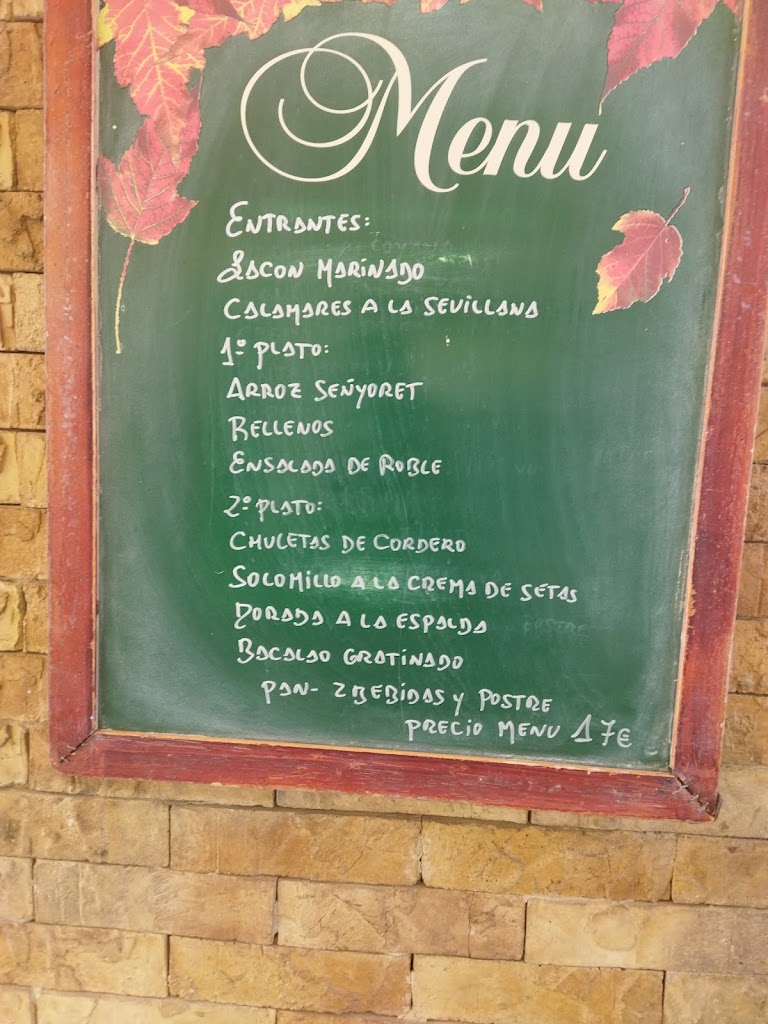 Menu
ENTRANTES:
LACON MARINADO
CALAMARES A LA SEVILLANA
1º PLATO:
ARROZ SEÑYORET
RELLENOS
ENSALADA DE ROBLE
2º PLATO:
CHULETAS DE CORDERO
SOLOMILLO A LA CREMA DE SETAS
DORADA A LA ESPALDA
BACALAO GRATINADO
PAN- 2 BEBIDAS Y POSTRE
PRECIO MENU 17€